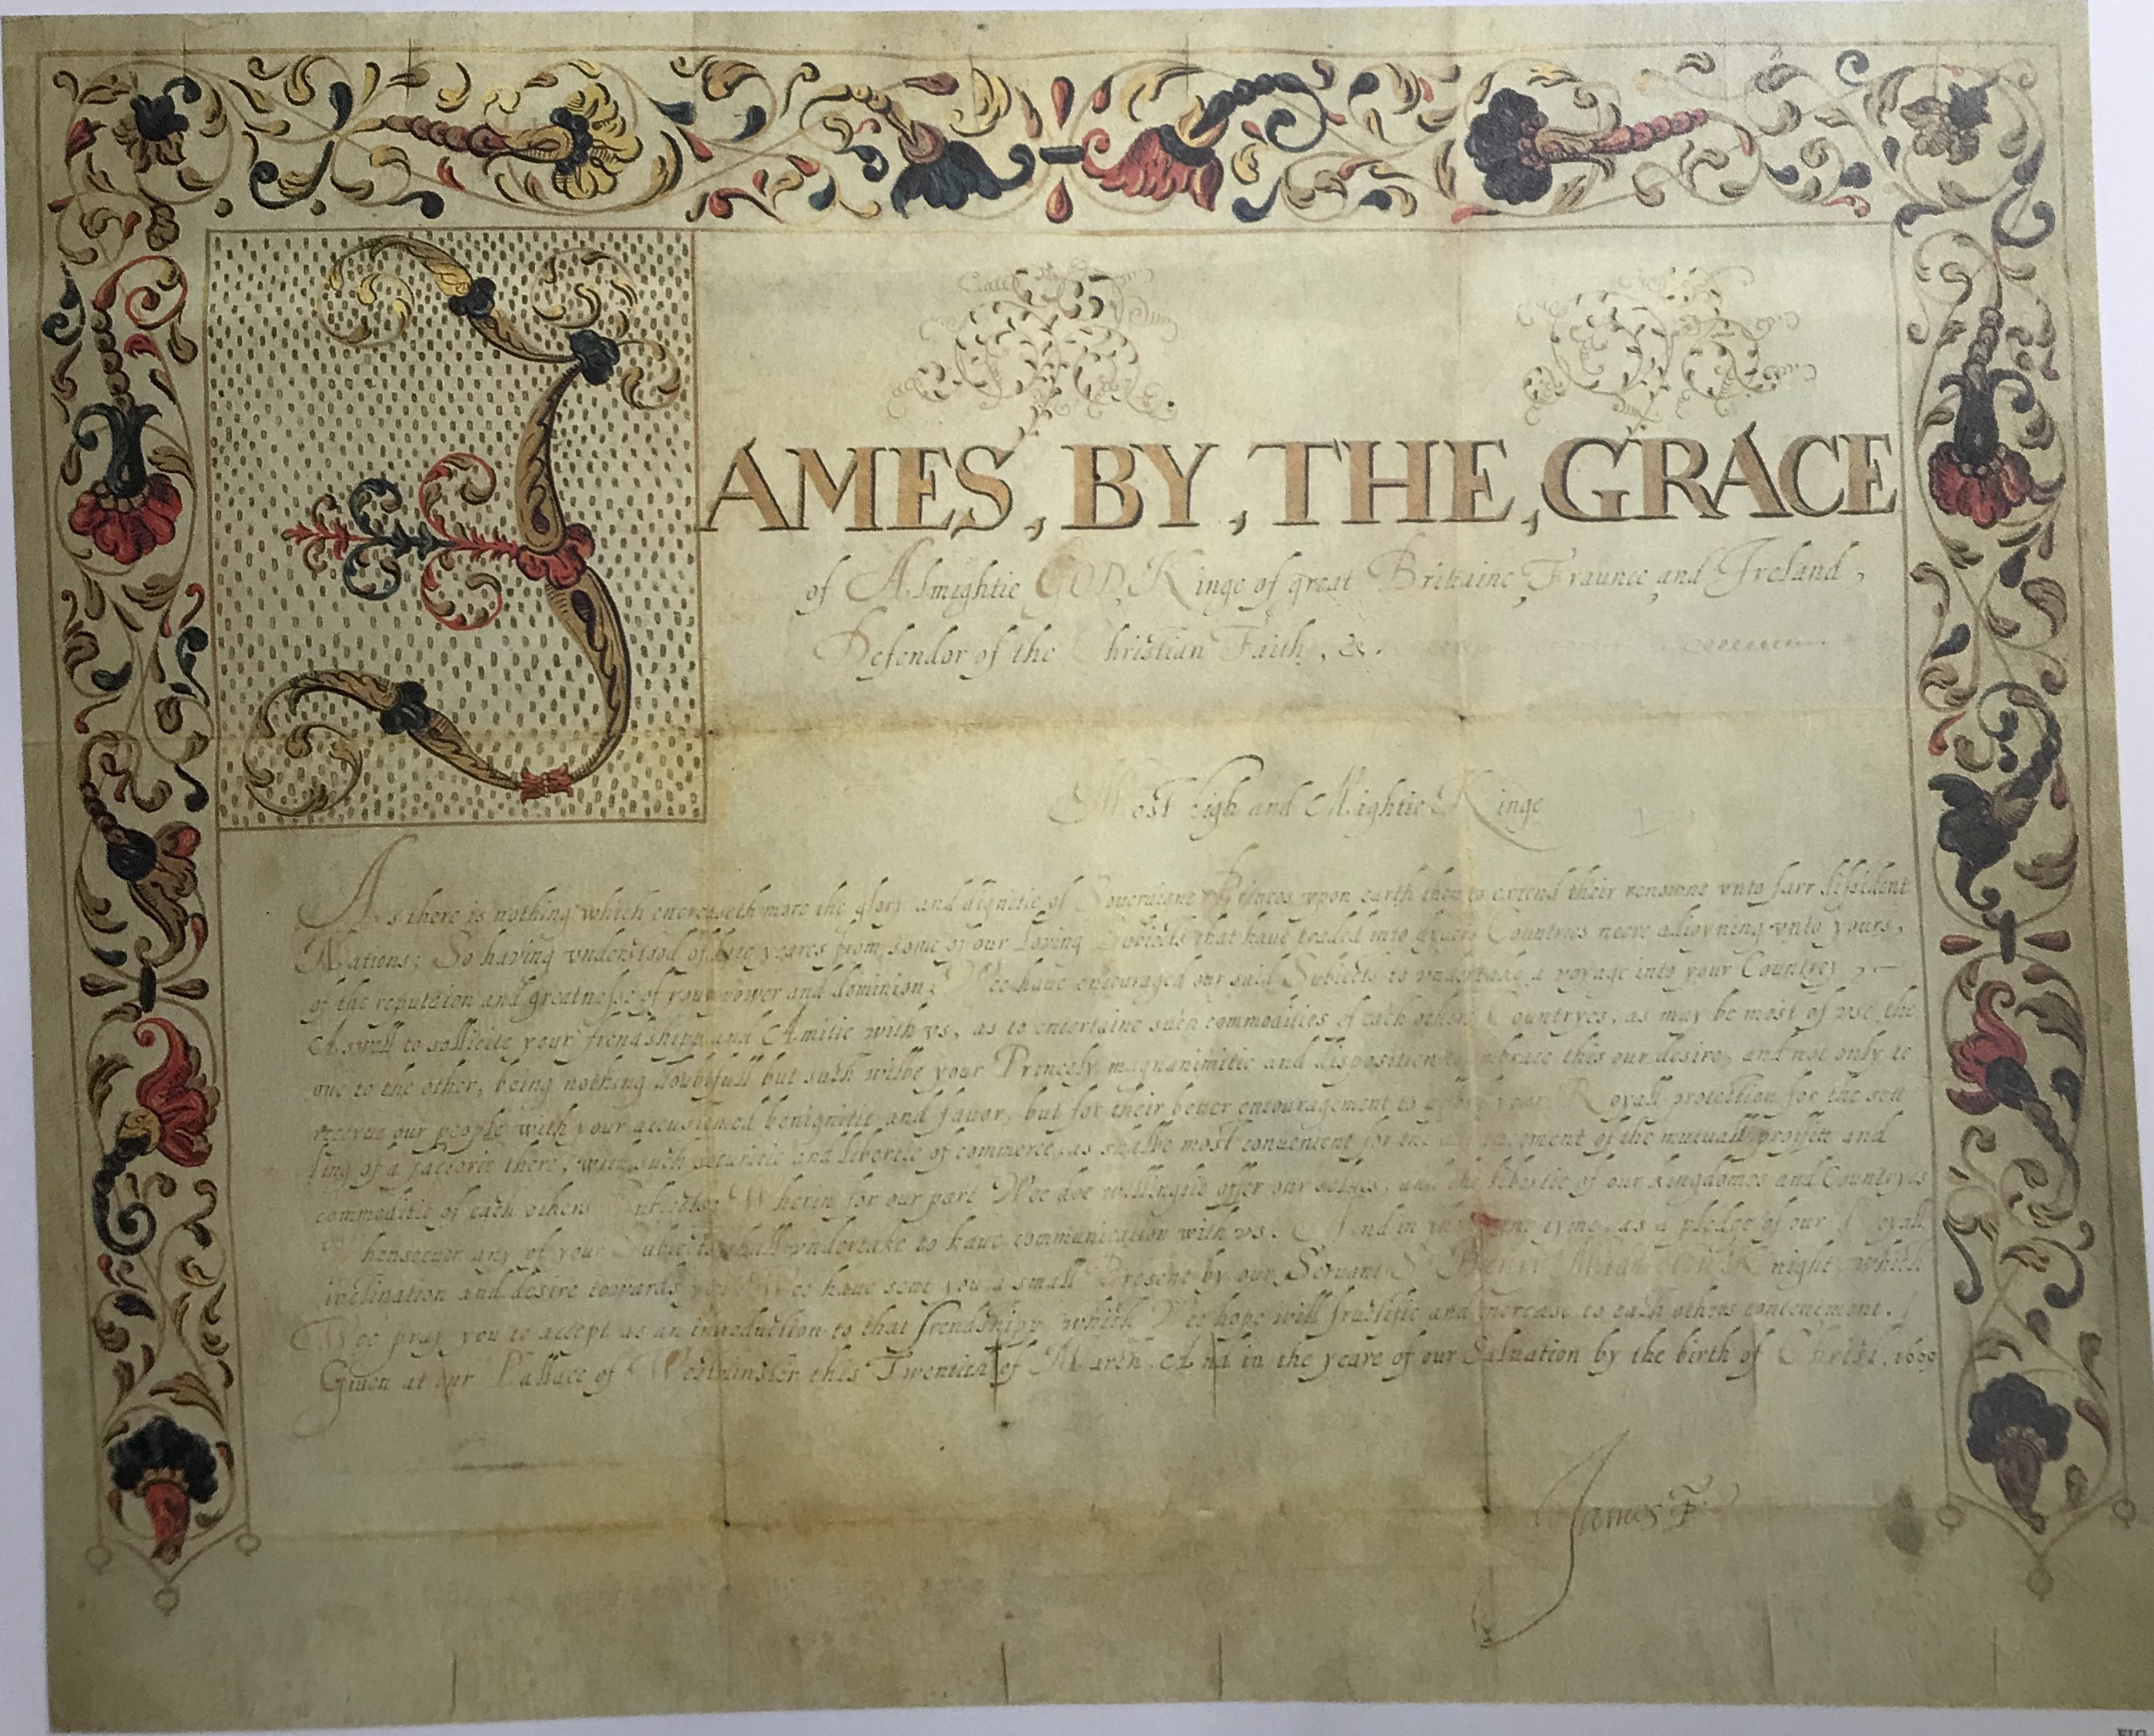 JAMES, BY, THE, GRACE
of Almightie GOD, Kinge of great Brittaine, Fraunce, and Ireland,
Defendor of the Christian Faith, &c.
Most high and Mightie Kinge
As there is nothing which encreaseth more the glory and dignitie of Soueraigne Princes vpon earth then to extend their renowne vnto farr
Nations: So having vnderstood of late yeares from some of our Loving Subiects that have traded into Countries neere adioyning vnto yours,
of the reputacion and greatnesse of your power and dominion: Wee haue encouraged our said Subiects to vndertake a voyage into your Countrey,
Aswell to sollicite your frendshipp and Amitie with vs, as to entertaine such commodities of each others Countryes, as may be most of vse the
one to the other, being nothing doubtfull but such wilbe your Princely magnanimitie and disposition to embrace this our desire, and not only to
receyue our people with your accustomed benignitie and favor, but for their better encouragement to your Royall protection for the sett
ling of a factorie there, with such securitie and libertie of commerce, as shalbe most convenient for the advancement of the mutuall proffitt and
commoditie of each others Subiects: Wherin for our part Wee doe willinglie offer our selues, and the libertie of our kingdomes and Countryes
whensoever any of your Subiects shall vndertake to haue communication with vs. And in the tyme, as a pledge of our Royall
inclination and desire towards you Wee have sent you a small Present by our Servant Sr Henry Middleton Knight, which
Wee pray you to accept as an introduction to that frendshipp which Wee hope will fructifie and increase to each others contentment.
Giuen at our Pallace of Westminster this Twentieth of March, And in the yeare of our Saluation by the birth of Christ, 1609
James R.
FIG